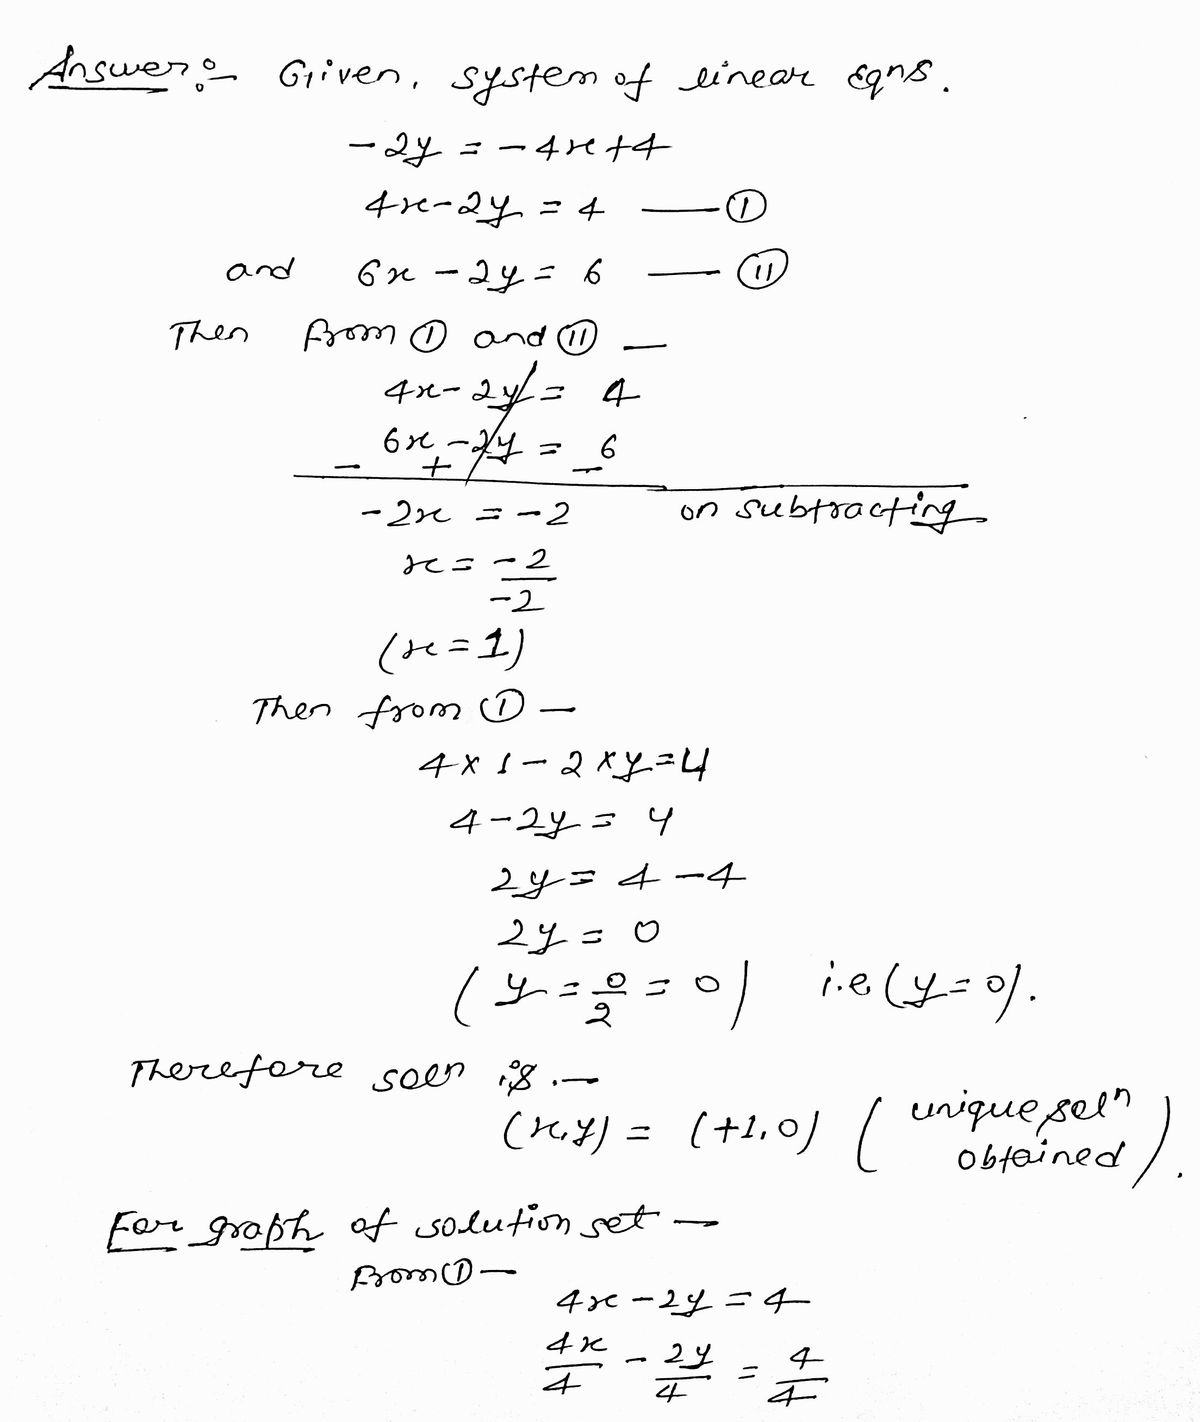 Answer:- Given, system of linear Eqns.
-2y = -4x+4
4x-2y = 4 — (I)
and 6x - 2y = 6 — (II)
Then from (I) and (II) —
4x- 2y = 4
6x - 2y = 6
- + -
-2x = -2 on subtracting
x = -2/-2
(x = 1)
Then from (I) —
4 x 1 - 2 x y = 4
4 - 2y = 4
2y = 4 - 4
2y = 0
(y = 0/2 = 0) i.e (y = 0).
Therefore soln is .—
(x,y) = (+1,0) (unique soln
obtained).
For graph of solution set —
From (I) —
4x - 2y = 4
4x/4 - 2y/4 = 4/4